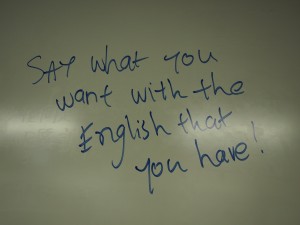 SAY what you
want with the
English that
you have!